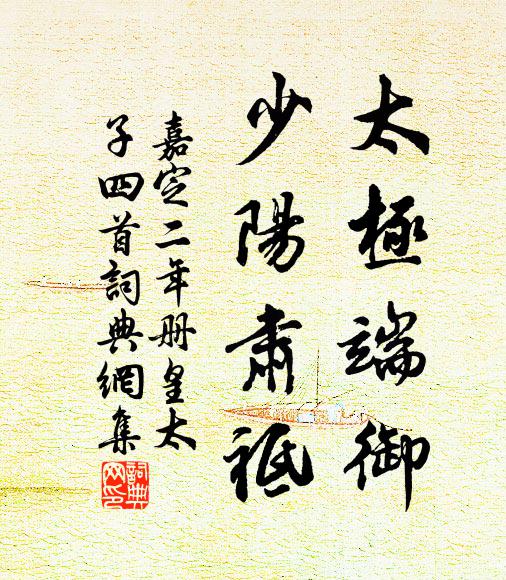 太極端御
少陽肅祗
嘉定二年冊皇太
子四首詞典網集
詞典網印